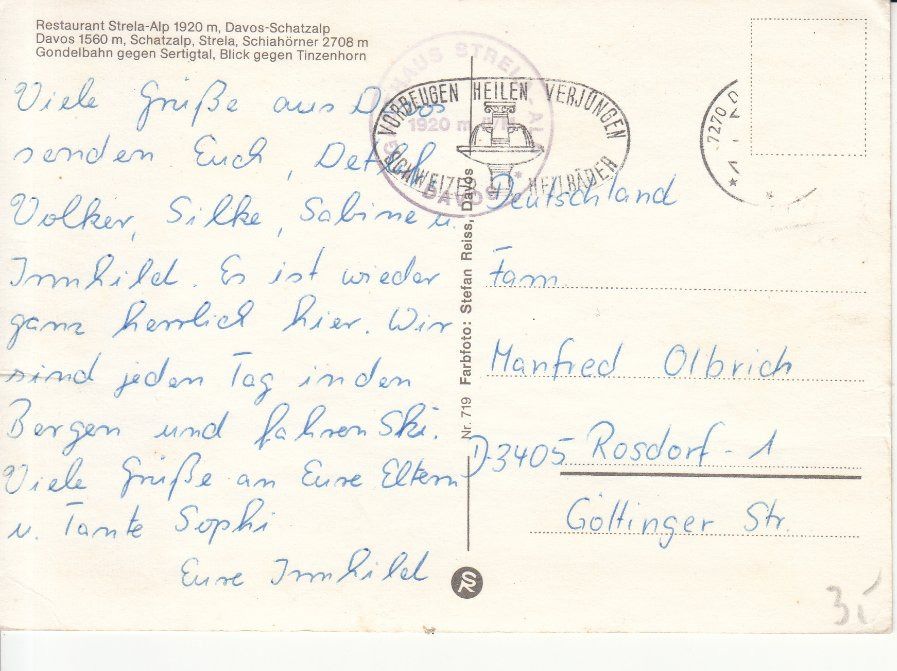 Restaurant Strela-Alp 1920 m, Davos-Schatzalp
Davos 1560 m, Schatzalp, Strela, Schiahörner 2708 m
Gondelbahn gegen Sertigtal, Blick gegen Tinzenhorn
Viele Grüße aus Davos
senden Euch, Detlef
Volker, Silke, Sabine u.
Irmhild. Es ist wieder
ganz herrlich hier. Wir
sind jeden Tag in den
Bergen und fahren Ski.
Viele Grüße an Eure Eltern
u. Tante Sophi
Eure Irmhild
VORBEUGEN HEILEN VERJÜNGEN
SCHWEIZER HEILBÄDER
HAUS STREL
1920 m
DAVOS
7270 D
Nr. 719 Farbfoto: Stefan Reiss, Davos
Deutschland
Fam.
Manfred Olbrich
D-3405 Rosdorf-1
Göttinger Str.
SR